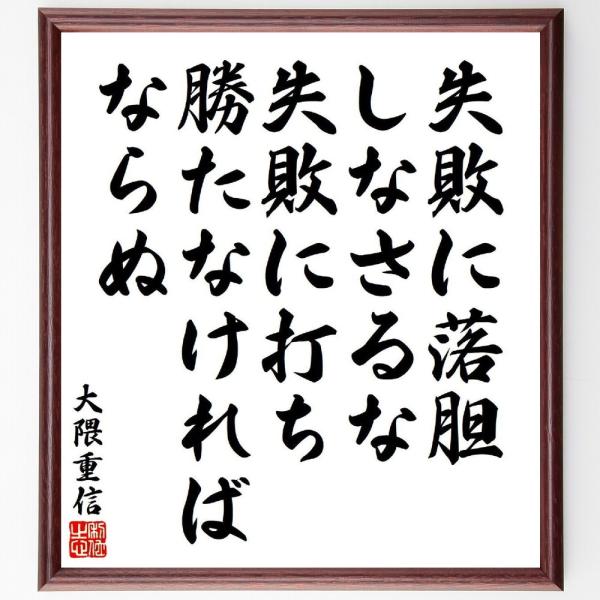 失敗に落胆
しなさるな
失敗に打ち
勝たなければ
ならぬ
大隈重信